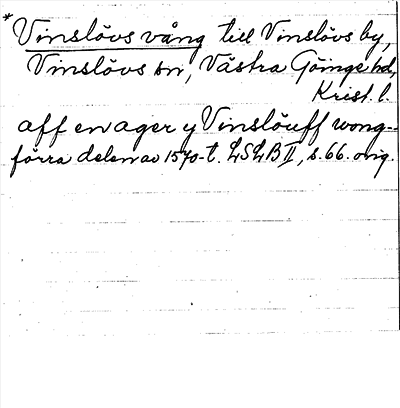 * Vinslövs vång till Vinslövs by,
Vinslövs sn, Västra Göinge hd,
Krist. l.
aff en ager y Vinslöuff wong--
förra delen av 1570-t. LSLB II, s. 66. orig.